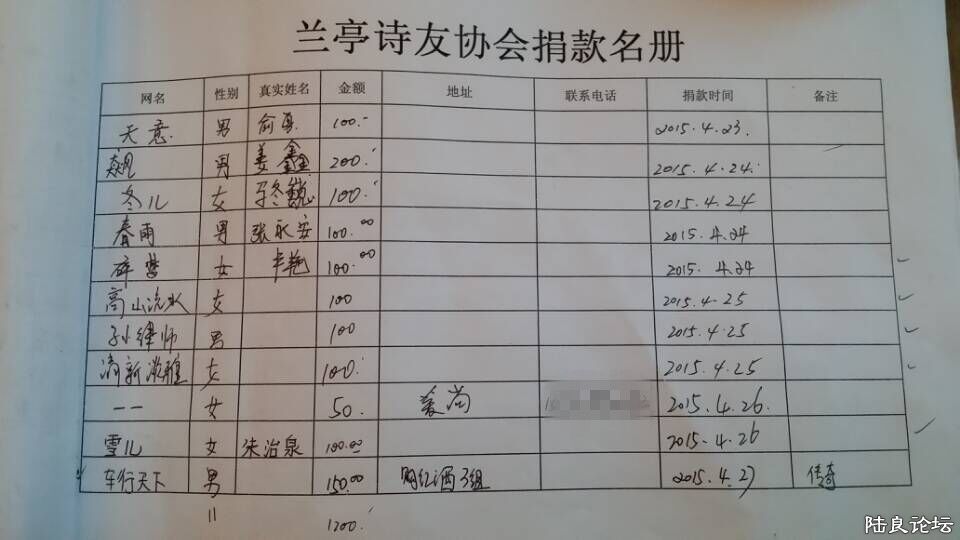 兰亭诗友协会捐款名册
网名 性别 真实姓名 金额 地址 联系电话 捐款时间 备注
天意 男 俞 100.- 2015.4.23
飙 男 姜鑫 200. 2015.4.24.
冬儿 女 冬 100. 2015.4.24
春雨 男 张永安 100.00 2015.4.24
碎梦 女 卡艳 100.00 2015.4.24
高山流水 女 100 2015.4.25
孙律师 男 100 2015.4.25
清新淡雅 女 100. 2015.4.25
一一 女 50. 爱尚 2015.4.26.
雪儿 女 朱治泉 100.00 2015.4.26
车行天下 男 150.00 购红酒3组 2015.4.27 传奇
11 1200.
陆良论坛